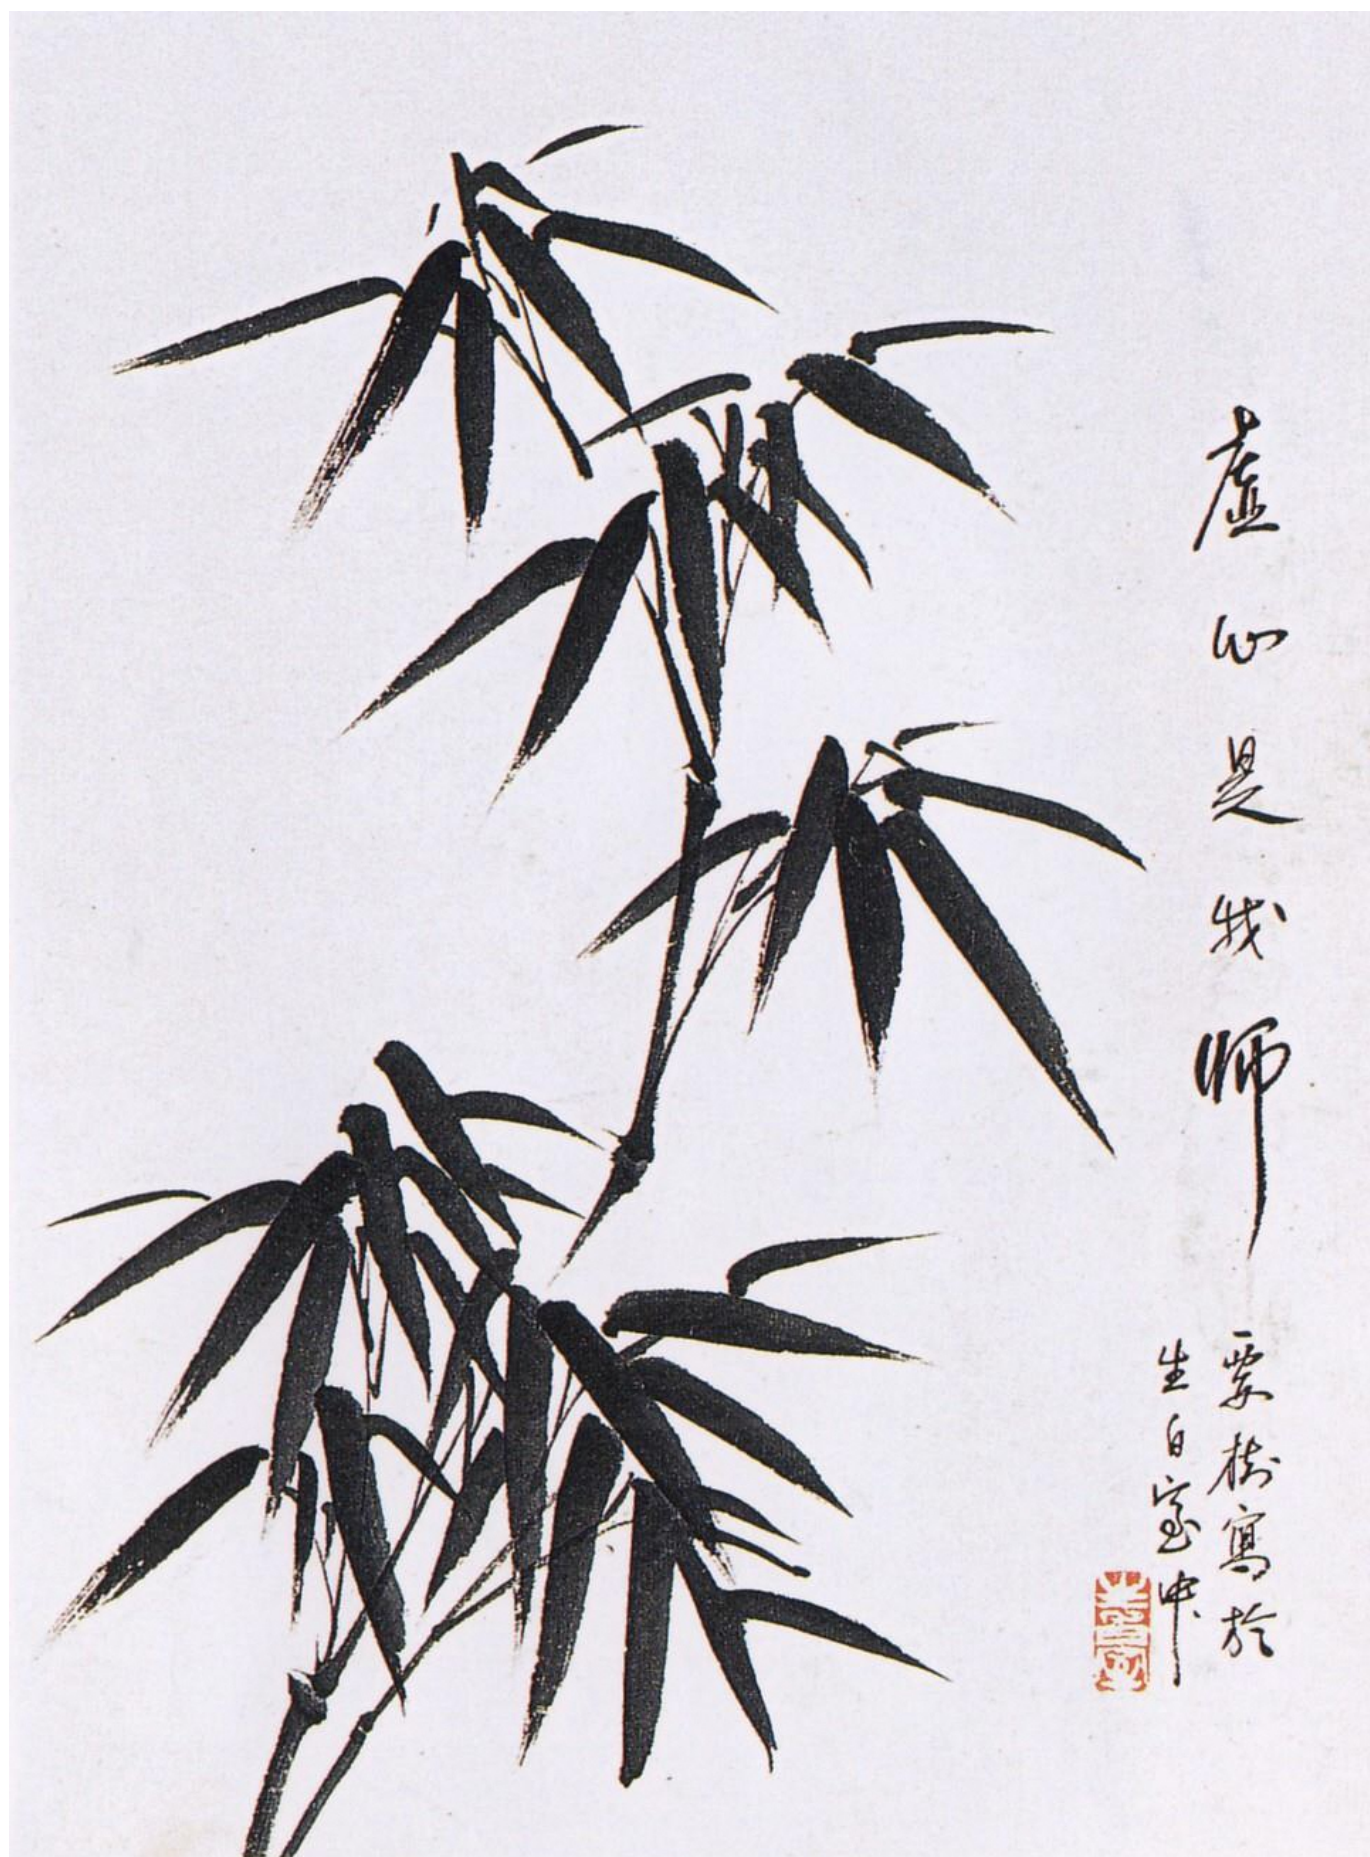 虛心是我師
樹寫於
生白室中